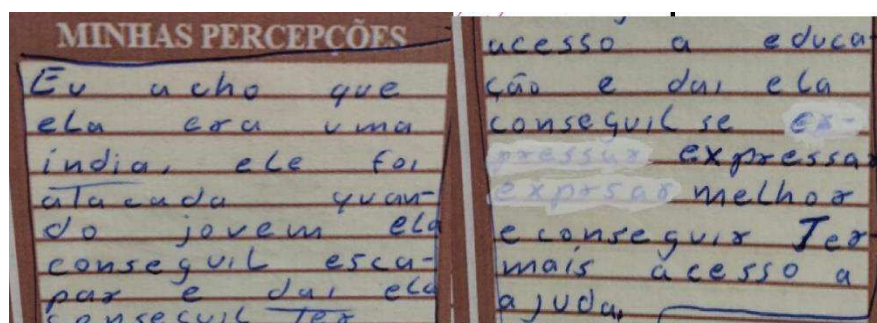 MINHAS PERCEPÇÕES
Eu acho que
ela era uma
india, ele foi
atacada quan-
do jovem ela
conseguil esca-
par e dai ela
conseguil Ter
acesso a educa-
ção e dai ela
conseguil se ex-
pressar expressar
exprsar melhor
e conseguir Ter
mais acesso a
ajuda,